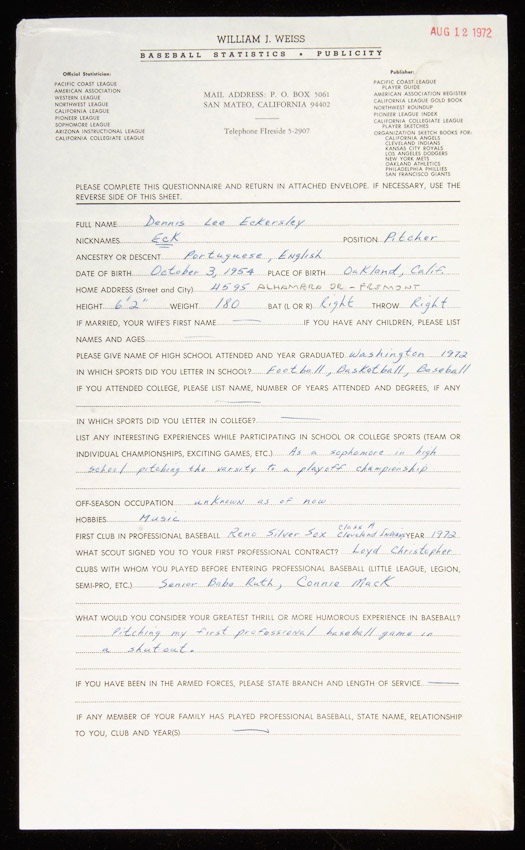 AUG 12 1972
WILLIAM J. WEISS
BASEBALL STATISTICS • PUBLICITY
Official Statistician:
PACIFIC COAST LEAGUE
AMERICAN ASSOCIATION
WESTERN LEAGUE
NORTHWEST LEAGUE
CALIFORNIA LEAGUE
PIONEER LEAGUE
SOPHOMORE LEAGUE
ARIZONA INSTRUCTIONAL LEAGUE
CALIFORNIA COLLEGIATE LEAGUE
MAIL ADDRESS: P. O. BOX 5061
SAN MATEO, CALIFORNIA 94402
Telephone FIreside 5-2907
Publisher:
PACIFIC COAST LEAGUE
PLAYER GUIDE
AMERICAN ASSOCIATION REGISTER
CALIFORNIA LEAGUE GOLD BOOK
NORTHWEST ROUNDUP
PIONEER LEAGUE INDEX
CALIFORNIA COLLEGIATE LEAGUE
PLAYER SKETCHES
ORGANIZATION SKETCH BOOKS FOR:
CALIFORNIA ANGELS
CLEVELAND INDIANS
KANSAS CITY ROYALS
LOS ANGELES DODGERS
NEW YORK METS
OAKLAND ATHLETICS
PHILADELPHIA PHILLIES
SAN FRANCISCO GIANTS
PLEASE COMPLETE THIS QUESTIONNAIRE AND RETURN IN ATTACHED ENVELOPE. IF NECESSARY, USE THE
REVERSE SIDE OF THIS SHEET.
FULL NAME Dennis Lee Eckersley
NICKNAMES Eck POSITION Pitcher
ANCESTRY OR DESCENT Portuguese, English
DATE OF BIRTH October 3, 1954 PLACE OF BIRTH Oakland, Calif.
HOME ADDRESS (Street and City) 4595 ALHAMBRA DR - FREMONT
HEIGHT 6'2" WEIGHT 180 BAT (L OR R) Right THROW Right
IF MARRIED, YOUR WIFE'S FIRST NAME IF YOU HAVE ANY CHILDREN, PLEASE LIST
NAMES AND AGES
PLEASE GIVE NAME OF HIGH SCHOOL ATTENDED AND YEAR GRADUATED Washington 1972
IN WHICH SPORTS DID YOU LETTER IN SCHOOL? Football, Basketball, Baseball
IF YOU ATTENDED COLLEGE, PLEASE LIST NAME, NUMBER OF YEARS ATTENDED AND DEGREES, IF ANY
IN WHICH SPORTS DID YOU LETTER IN COLLEGE?
LIST ANY INTERESTING EXPERIENCES WHILE PARTICIPATING IN SCHOOL OR COLLEGE SPORTS (TEAM OR
INDIVIDUAL CHAMPIONSHIPS, EXCITING GAMES, ETC.) As a sophomore in high
school pitching the varsity to a playoff championship
OFF-SEASON OCCUPATION unknown as of now
HOBBIES Music
FIRST CLUB IN PROFESSIONAL BASEBALL Reno Silver Sox Class A Cleveland Indians YEAR 1972
WHAT SCOUT SIGNED YOU TO YOUR FIRST PROFESSIONAL CONTRACT? Loyd Christopher
CLUBS WITH WHOM YOU PLAYED BEFORE ENTERING PROFESSIONAL BASEBALL (LITTLE LEAGUE, LEGION,
SEMI-PRO, ETC.) Senior Babe Ruth, Connie Mack
WHAT WOULD YOU CONSIDER YOUR GREATEST THRILL OR MORE HUMOROUS EXPERIENCE IN BASEBALL?
Pitching my first professional baseball game in
a shutout.
IF YOU HAVE BEEN IN THE ARMED FORCES, PLEASE STATE BRANCH AND LENGTH OF SERVICE
IF ANY MEMBER OF YOUR FAMILY HAS PLAYED PROFESSIONAL BASEBALL, STATE NAME, RELATIONSHIP
TO YOU, CLUB AND YEAR(S)